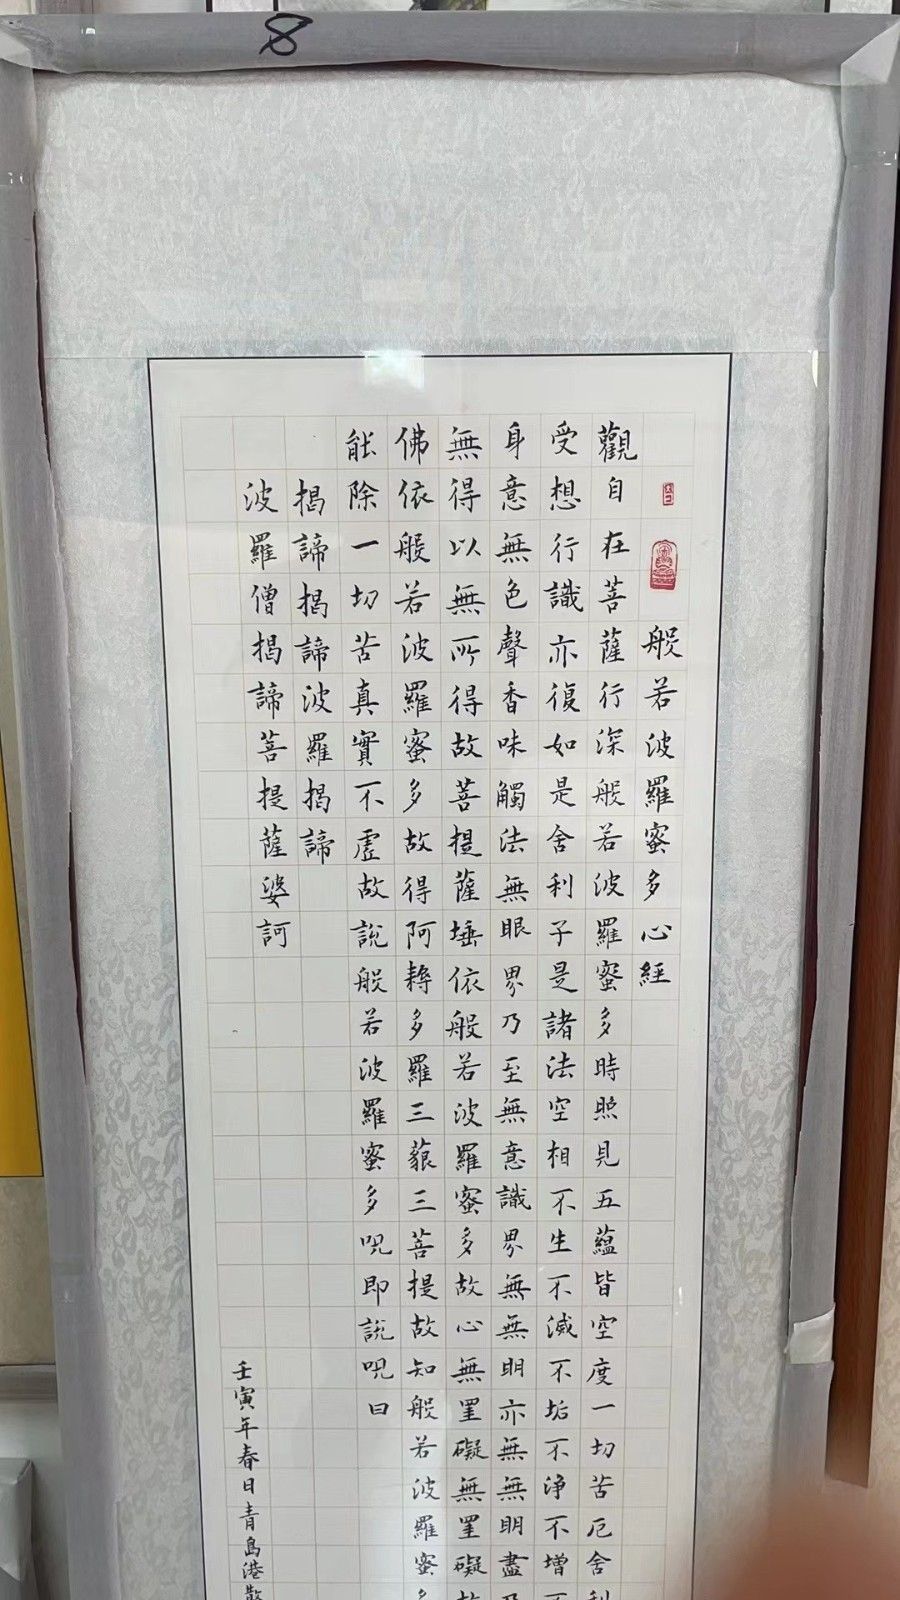 8
般若波羅蜜多心經
觀自在菩薩行深般若波羅蜜多時照見五蘊皆空度一切苦厄舍利
受想行識亦復如是舍利子是諸法空相不生不滅不垢不淨不增不
身意無色聲香味觸法無眼界乃至無意識界無無明亦無無明盡乃
無得以無所得故菩提薩埵依般若波羅蜜多故心無罣礙無罣礙故
佛依般若波羅蜜多故得阿耨多羅三藐三菩提故知般若波羅蜜多
能除一切苦真實不虛故說般若波羅蜜多呪即說呪曰
揭諦揭諦波羅揭諦
波羅僧揭諦菩提薩婆訶
壬寅年春日青島港散